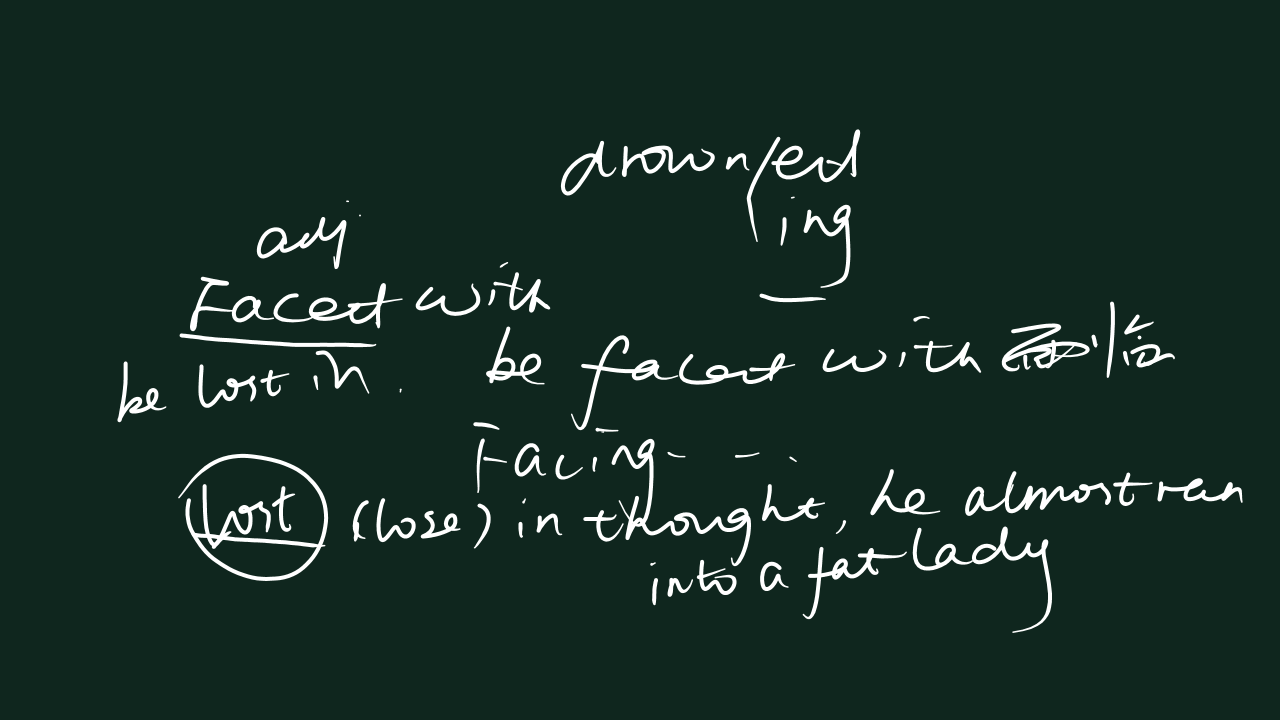 drown/ed
ing
adj
Faced with
be lost in.
be faced with 面临
Facing - - .
Lost (lose) in thought, he almost ran
into a fat lady